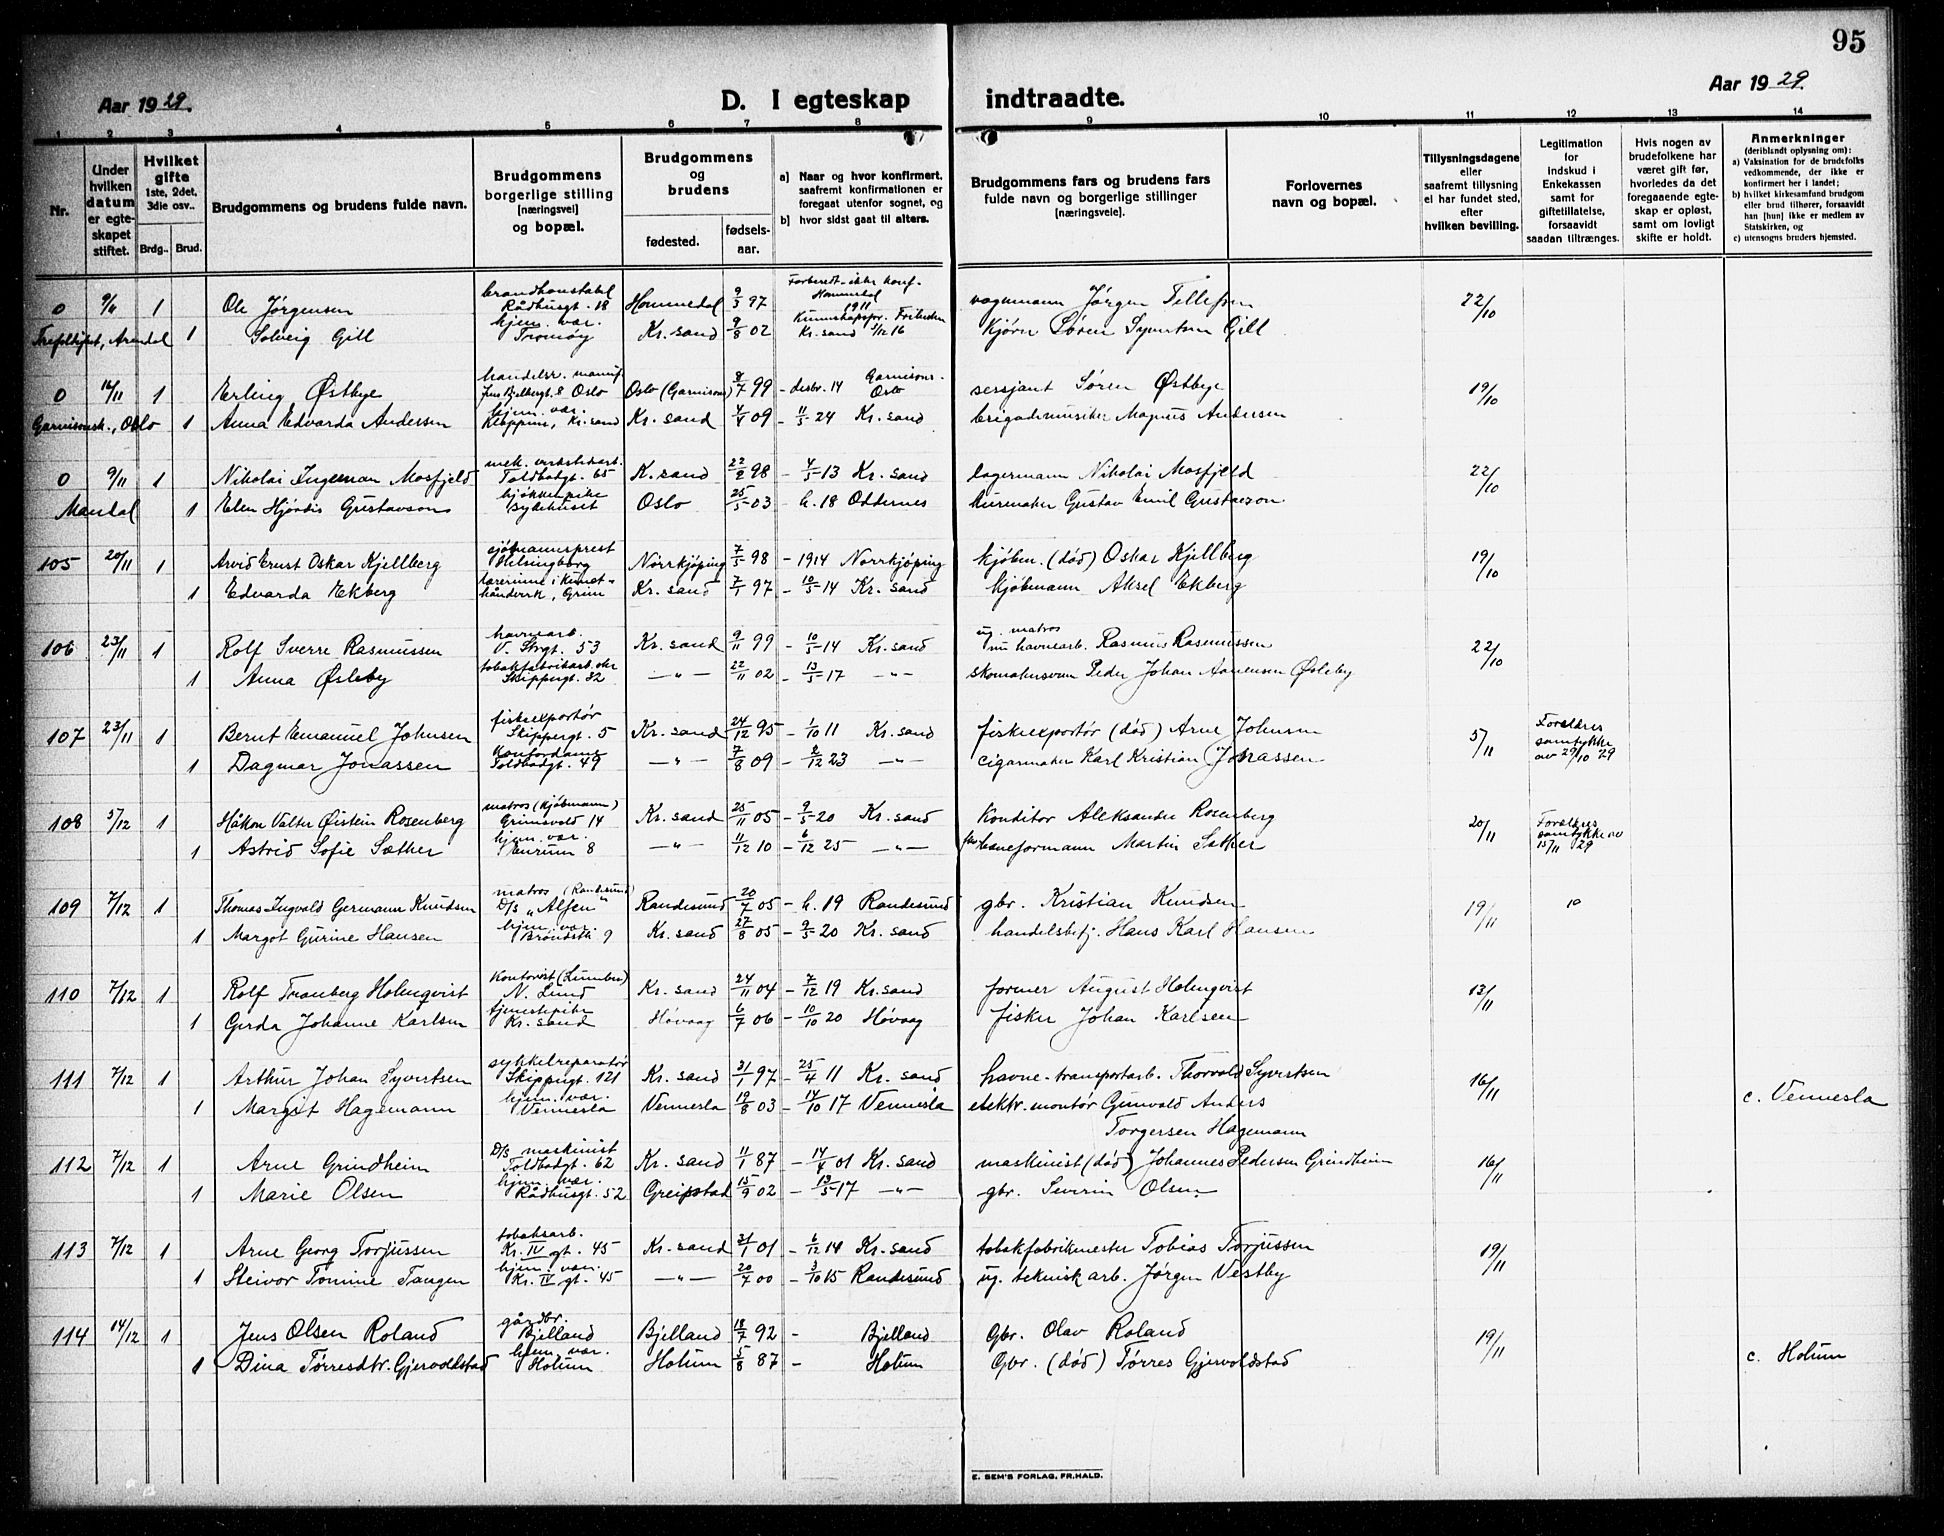 95
Aar 1929.
D. I egteskap indtraadte.
Aar 1929.
1 2 3 4 5 6 7 8 9 10 11 12 13 14
Nr.
Under hvilken datum er egteskapet stiftet.
Hvilket gifte 1ste, 2det, 3die osv..
Brdg.. Brud.
Brudgommens og brudens fulde navn.
Brudgommens borgerlige stilling [næringsvei] og bopæl.
Brudgommens og brudens
fødested. fødsels-aar.
a) Naar og hvor konfirmert, saafremt konfirmationen er foregaat utenfor sognet, og
b) hvor sidst gaat til alters.
Brudgommens fars og brudens fars fulde navn og borgerlige stillinger [næringsveie].
Forlovernes navn og bopæl.
Tillysningsdagene eller saafremt tillysning ei har fundet sted, efter hvilken bevilling.
Legitimation for Indskud i Enkekassen samt for giftetillatelse, forsaavidt saadan tiltrænges.
Hvis nogen av brudefolkene har været gift før, hvorledes da det foregaaende egteskap er opløst, samt om lovligt skifte er holdt.
Anmerkninger (deriblandt oplysning om):
a) Vaksination for de brudefolks vedkommende, der ikke er konfirmert her i landet;
b) hvilket kirkesamfund brudgom eller brud tilhører, forsaavidt han [hun] ikke er medlem av Statskirken, og
c) utensogns bruders hjemsted.
0 1 Ole Jørgensen brandkonstabel Rådhusgt. 18 Hommedal 9/3 97 Forberedt - ikke konf. Hommedal 1911 vognmann Jørgen Tellefsen 22/10
Arendal 1 Solveig Gill hjem. vær. Tromøy Kr. sand 9/8 02 Kr. sand 3/12 16 Kjørn Søren Syvertsen Gill
0 16/11 1 Erling Østbye Oslo Oslo (Garnisons) 8/7 99 - desbr. 14 Garnisons - Oslo sersjant Søren Østbye 19/10
Garnisonsk., Oslo 1 Anna Edvarda Andersen hjem. vær. Kr. sand Kr. sand 7/4 09 - 11/5 24 Kr. sand brigademusiker Magnus Andersen
0 9/11 1 Nikolai Ingeman Mosfjeld mek. verkstedarb. Toldbodgt. 65 K. sand 22/2 98 - 4/5 13 Kr. sand lagermann Nikolai Mosfjeld 22/10
Mandal 1 Elen Hjördis Gustavsons kjøkkenpike Bydehuset Oslo 25/5 03 - h. 18 Oddernes Gustav Emil Gustavzon
105 20/11 1 Arvid Ernst Oskar Kjellberg sjømannsprest Helsingborg Norrkjøping 7/5 98 - 1914 Norrkjøping kjøbm. (død) Oskar Kjellberg 19/10
1 Edvarda Ekberg lærerinne i kunst-håndverk, Grim Kr. sand 7/1 97 - 10/5 14 Kr. sand kjøbmann Aksel Ekberg
106 23/11 1 Rolf Sverre Rasmussen havnearb. V. Strgt. 53 Kr. sand 9/11 99 - 10/5 14 Kr. sand ug. matros nu havnearb. Rasmus Rasmussen 22/10
1 Anna Øsleby tobakfabrikarb.ske Skippergt. 32 —"— 22/11 02 - 13/5 17 —"— skomakersvenn Peder Johan Aanensen Øsleby
107 23/11 1 Bernt Emanuel Johnsen fiskeexportør Skippergt. 5 Kr. sand 24/12 95 - 1/10 11 Kr. sand fiskeexportør (død) Arne Johnsen 5/11 Foreldres samtykke av 29/10 29
1 Dagmar Jonassen Kontordame Toldbodgt. 49 —"— 7/8 09 - 2/12 23 —"— cigarmaker Karl Kristian Jonassen
108 5/12 1 Håkon Valter Øistein Rosenberg matros (kjøbmann) Grimsvold 14 Kr. sand 25/11 05 - 9/5 20 Kr. sand Konditor Aleksander Rosenberg 20/11 Foreldres samtykke av 15/11 29
1 Astrid Sofie Sæther hjem. vær. 8 —"— 11/12 10 - 6/12 25 —"— baneformann Martin Sæther
109 7/12 1 Thomas Ingvald Germann Knudsen matros (Randesund) D/S "Alfen" Randesund 20/7 05 - h. 19 Randesund gbr. Kristian Knudsen 19/11
1 Margot Gurine Hansen hjem. vær. 9 Kr. sand 27/8 05 - 9/5 20 Kr. sand handelsbetj. Hans Karl Hansen
110 7/12 1 Rolf Tranberg Holmqvist Kontorist N. Lund Kr. sand 24/11 04 - 7/12 19 Kr. sand former August Holmqvist 13/11
1 Gerda Johanne Karlsen tjenestepike Kr. sand Høvaag 6/7 06 - 10/10 20 Høvaag fisker Johan Karlsen
111 7/12 1 Arthur Johan Syvertsen sykkelreparatør Skippergt. 121 Kr. sand 21/1 97 - 25/4 11 Kr. sand havne-transportarb. Thorvald Syvertsen 16/11
1 Margit Hagemann hjem. vær. Vennesla Vennesla 19/8 03 - 14/10 17 Vennesla elektr. montör Gunvald Anders Torgersen Hagemann c. Vennesla
112 7/12 1 Arne Grindheim D/S maskinist Toldbodgt. 62 Kr. sand 11/1 87 - 14/4 01 Kr. sand maskinist (død) Johannes Pedersen Grindheim 16/11
1 Marie Olsen hjem. vær. Rådhusgt. 52 Greipstad 15/9 02 - 13/5 17 —"— gbr. Severin Olsen
113 7/12 1 Arne Georg Torjussen tobaksarb. Kr. IV gt. 45 Kr. sand 21/1 01 - 6/12 14 Kr. sand tobakfabrikmester Tobias Torjussen 19/11
1 Steivor Tomine Tangen hjem. vær. Kr. IV gt. 45 —"— 20/7 00 - 3/10 15 Randesund ug. teknisk arb. Jørgen Vestby
114 14/12 1 Jens Olsen Roland gårdbr. Bjelland Bjelland 18/7 92 - Bjelland Gbr. Olav Roland 19/11
1 Dina Tørresdtr. Gjervoldstad hjem. vær. Holum Holum 5/8 87 - Holum Gbr. (død) Tørres Gjervoldstad c. Holum
E. SEM'S FORLAG, FR.HALD.